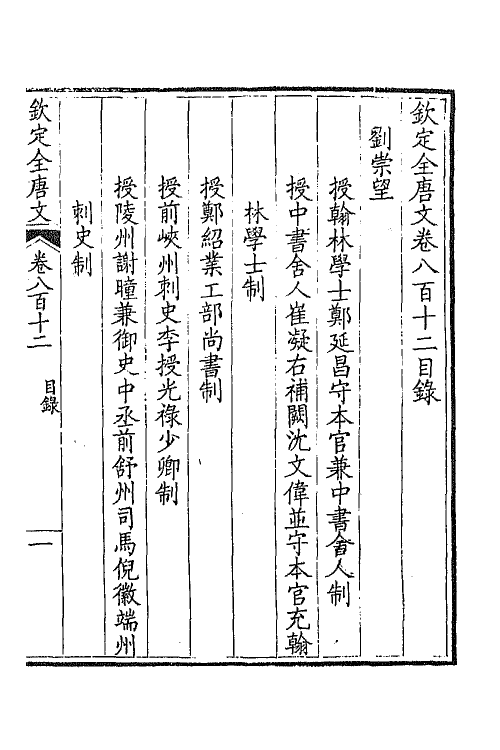 欽定全唐文卷八百十二目錄
劉崇望
授翰林學士鄭延昌守本官兼中書舍人制
授中書舍人崔凝右補闕沈文偉並守本官充翰
林學士制
授鄭紹業工部尚書制
授前峽州刺史李授光祿少卿制
授陵州謝瞳兼御史中丞前舒州司馬倪徽端州
刺史制
欽定全唐文
卷八百十二
目錄
一